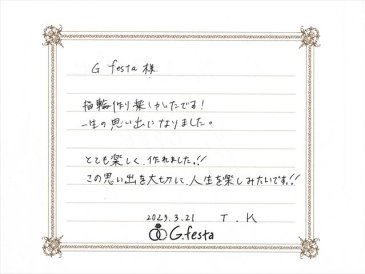 G festa 様
指輪作り楽しかったです!
一生の思い出になりました。
とても楽しく、作れました!!
この思い出を大切にして、人生を楽しみたいです!!
2023.3.21 T.K
G.festa